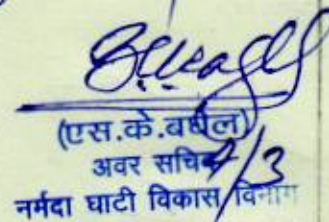 (एस.के.बघेल)
अवर सचिव 4/3
नर्मदा घाटी विकास विभाग